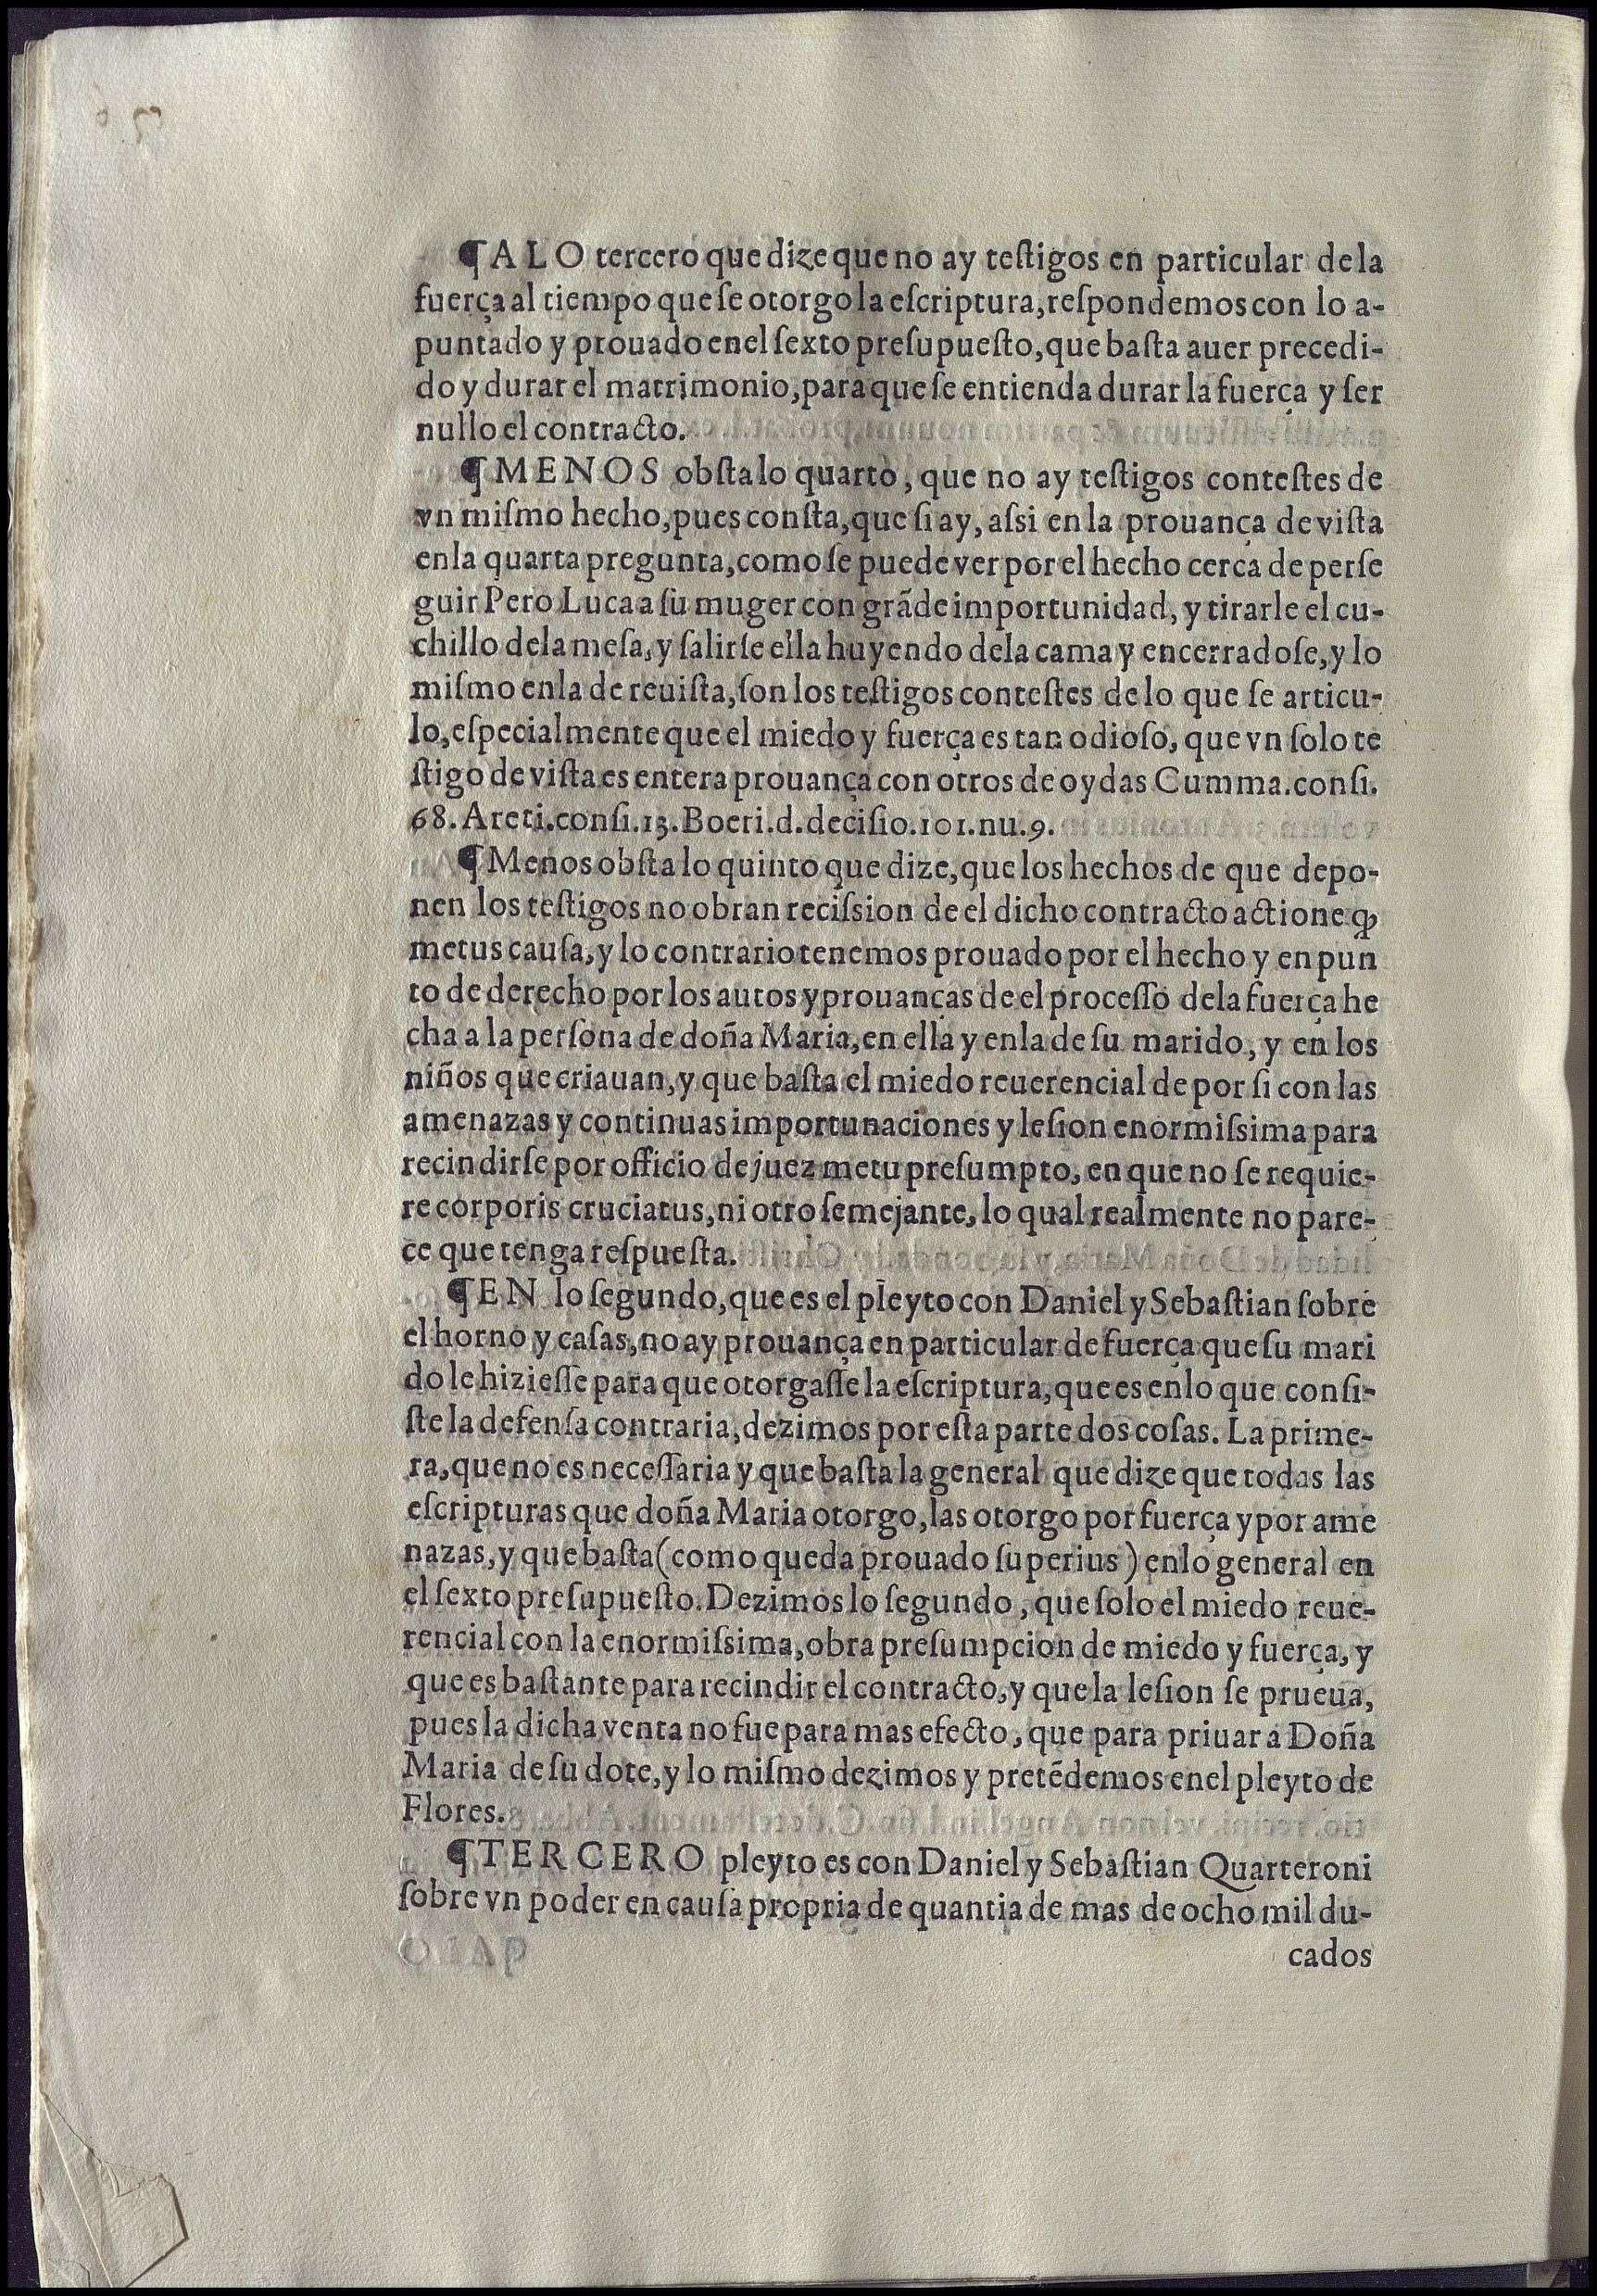 ¶ A L O tercero que dize que no ay teſtigos en particular de la
fuerça al tiempo que ſe otorgo la eſcriptura, reſpondemos con lo a-
puntado y prouado enel ſexto preſupueſto, que baſta auer precedi-
do y durar el matrimonio, para que ſe entienda durar la fuerça y ſer
nullo el contracto.
¶ MENOS obſta lo quarto, que no ay teſtigos conteſtes de
vn miſmo hecho, pues conſta, que ſi ay, aſsi en la prouança de viſta
enla quarta pregunta, como ſe puede ver por el hecho cerca de perſe
guir Pero Luca a ſu muger con grãde importunidad, y tirarle el cu-
chillo dela meſa, y ſalirſe ella huyendo dela cama y encerradoſe, y lo
miſmo enla de reuiſta, ſon los teſtigos conteſtes de lo que ſe articu-
lo, eſpecialmente que el miedo y fuerça es tan odioſo, que vn ſolo te
ſtigo de viſta es entera prouança con otros de oydas Cumma. conſi.
68. Areti. conſi. 13. Boeri. d. deciſio. 101. nu. 9.
¶ Menos obſta lo quinto que dize, que los hechos de que depo-
nen los teſtigos no obran reciſsion de el dicho contracto actione ꝙ
metus cauſa, y lo contrario tenemos prouado por el hecho y en pun
to de derecho por los autos y prouanças de el proceſſo dela fuerça he
cha a la perſona de doña Maria, en ella y enla de ſu marido, y en los
niños que criauan, y que baſta el miedo reuerencial de por ſi con las
amenazas y continuas importunaciones y leſion enormiſsima para
recindirſe por officio de juez metu preſumpto, en que no ſe requie-
re corporis cruciatus, ni otro ſemejante, lo qual realmente no pare-
ce que tenga reſpueſta.
¶ EN lo ſegundo, que es el pleyto con Daniel y Sebaſtian ſobre
el horno y caſas, no ay prouança en particular de fuerça que ſu mari
do le hizieſſe para que otorgaſſe la eſcriptura, que es enlo que conſi-
ſte la defenſa contraria, dezimos por eſta parte dos coſas. La prime-
ra, que no es neceſſaria y que baſta la general que dize que todas las
eſcripturas que doña Maria otorgo, las otorgo por fuerça y por ame
nazas, y que baſta (como queda prouado ſuperius) enlo general en
el ſexto preſupueſto. Dezimos lo ſegundo, que ſolo el miedo reue-
rencial con la enormiſsima, obra preſumpcion de miedo y fuerça, y
que es baſtante para recindir el contracto, y que la leſion ſe prueua,
pues la dicha venta no fue para mas efecto, que para priuar a Doña
Maria de ſu dote, y lo miſmo dezimos y pretẽdemos enel pleyto de
Flores.
¶ TERCERO pleyto es con Daniel y Sebaſtian Quarteroni
ſobre vn poder en cauſa propria de quantia de mas de ocho mil du-
cados